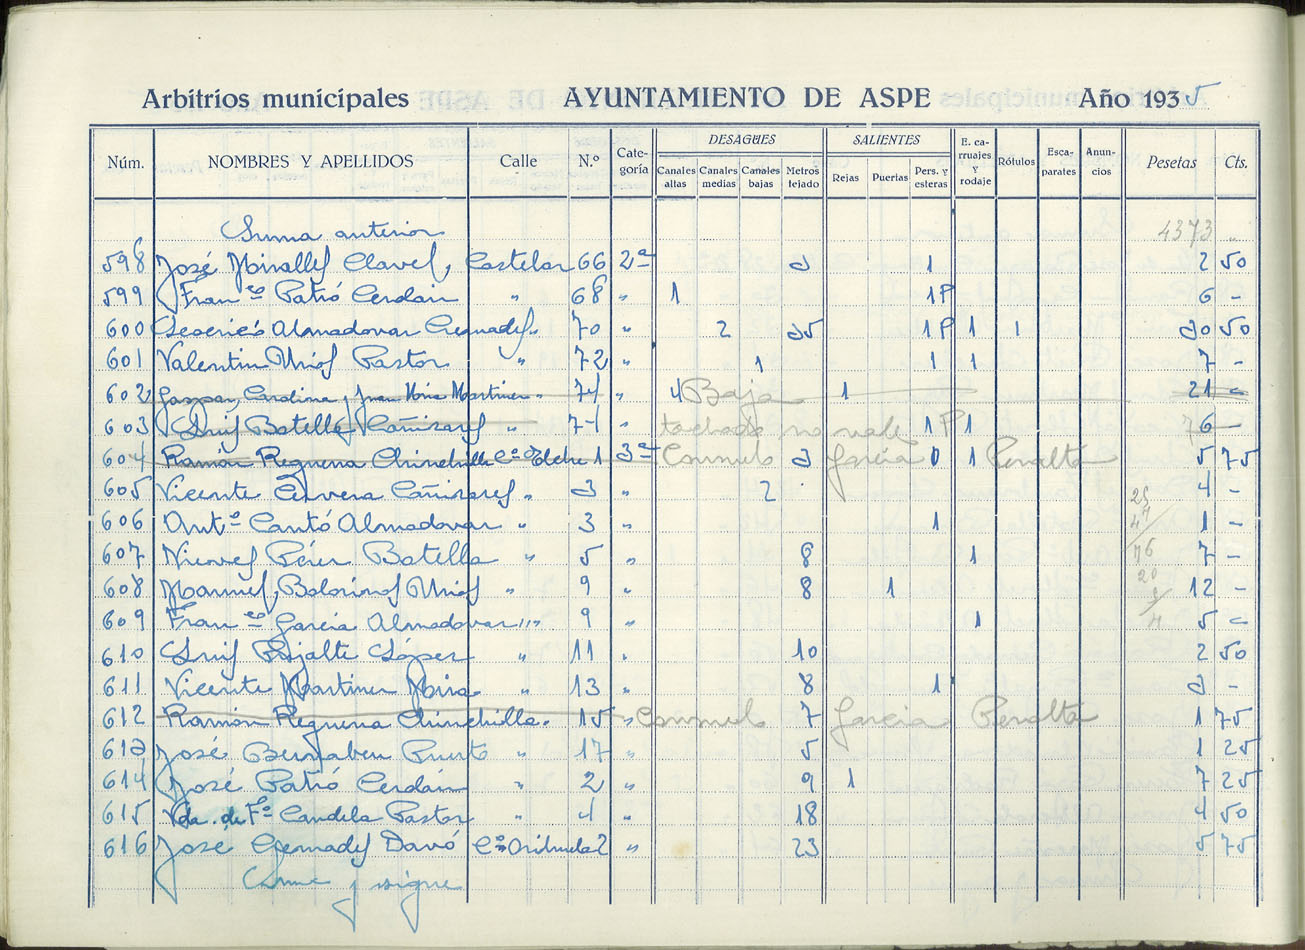 Arbitrios municipales AYUNTAMIENTO DE ASPE Año 1935
Núm. NOMBRES Y APELLIDOS Calle N.º Cate-goría DESAGÜES Canales altas Canales medias Canales bajas Metros tejado SALIENTES Rejas Puertas Pers. y esteras E. ca-rruajes y rodaje Rótulos Esca-parates Anun-cios Pesetas Cts.
Suma anterior 4373 "
598 José Miralles Clavel, Castelar 66 2ª 2 1 2 50
599 Franco Patió Cerdán " 68 " 1 1P 6 -
600 Almadovar Cremades " 70 " 2 25 1P 1 1 20 50
601 Valentin Pastor " 72 " 1 1 1 7 -
602 Gaspar Cardina y Juan Mira Martinez " 74 " 4 Baja 1 21 -
603 Luis Botella Cañizares " 74 " tachado no vale 1P 1 6 -
604 Ramón Requena Chinchilla Cº Elche 1 3ª Consuelo 2 García 0 1 Peralta 5 75
605 Vicente Cervera Cañizares " 2 " 2 4 -
606 Antº Cantó Almadovar " 3 " 1 1 -
607 Nieves Pérez Botella " 5 " 8 1 7 -
608 Manuel Bolorinos " 9 " 8 1 12 -
609 Franco García Almadovar " 9 " 1 5 -
610 Luis Pujalte López " 11 " 10 2 50
611 Vicente Martinez Mira " 13 " 8 1 2 -
612 Ramón Requena Chinchilla " 15 " Consuelo 7 García Peralta 1 75
613 José Bernabeu Puerto " 17 " 5 1 25
614 José Patió Cerdán " 2 " 9 1 7 25
615 Vda. de Fº Candela Pastor " 4 " 18 4 50
616 José Cremades Davó Cº Orihuela 2 " 23 5 75
Suma y sigue